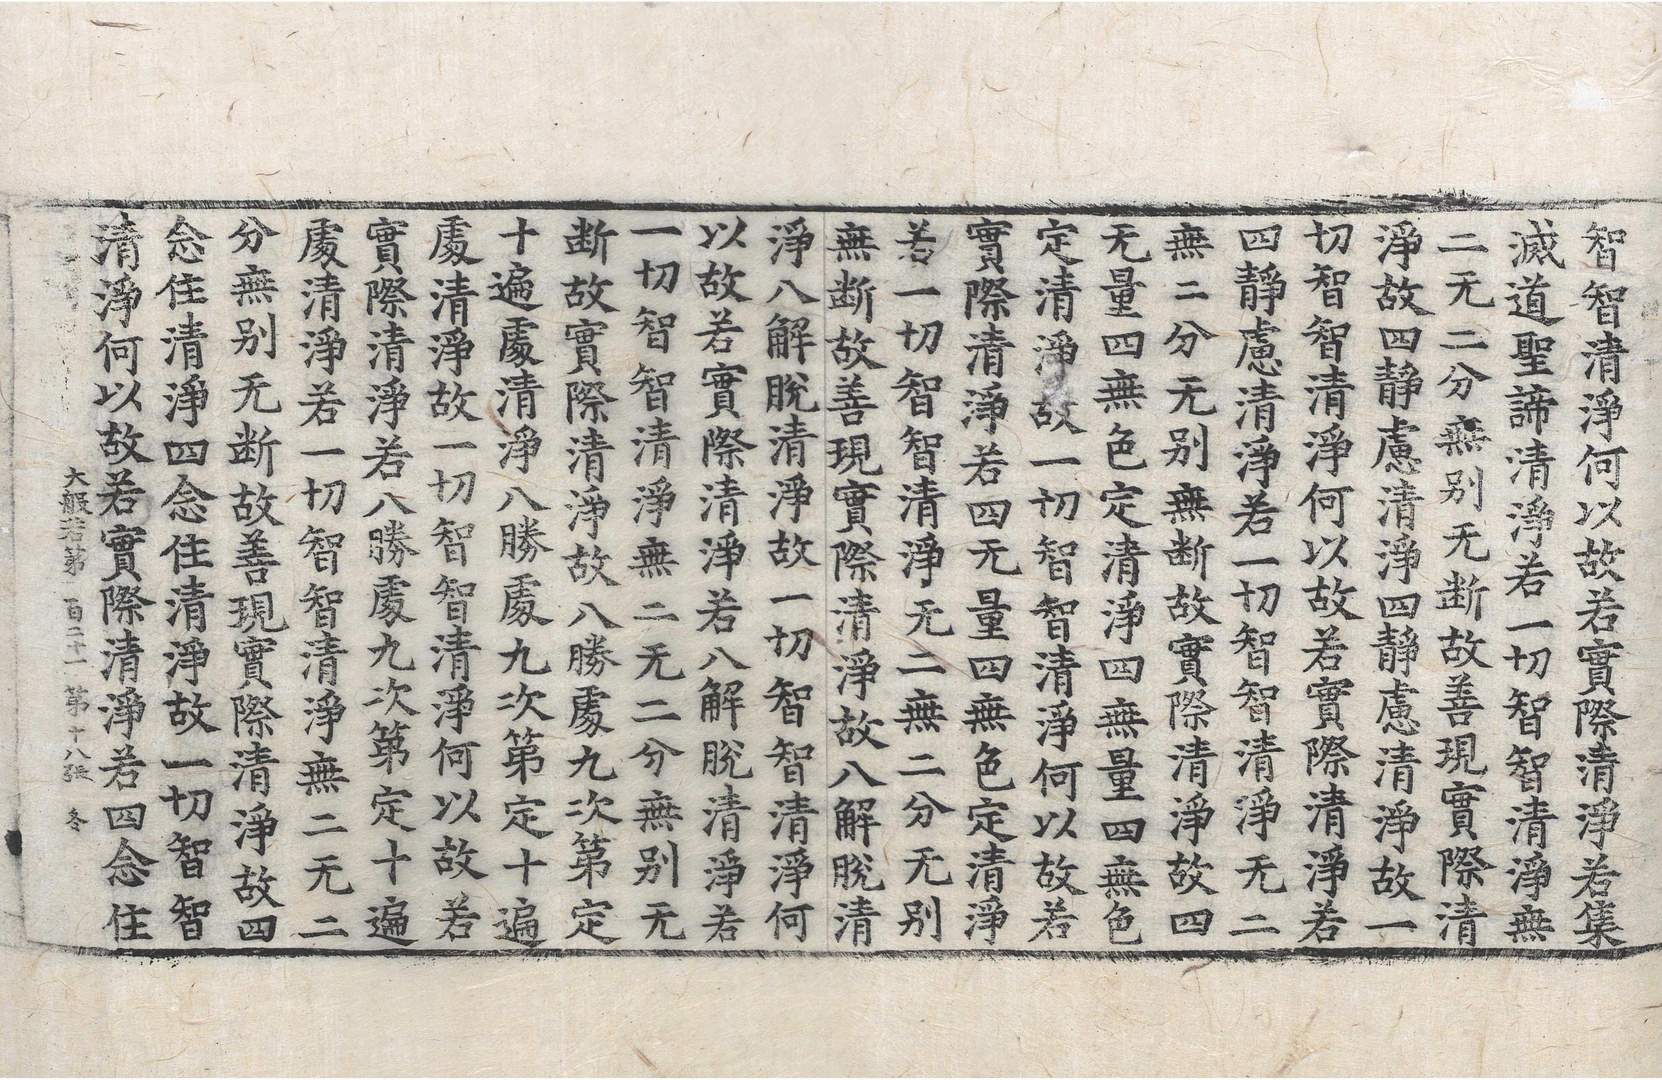 智智清淨何以故若實際清淨若集
滅道聖諦清淨若一切智智清淨無
二无二分無别无断故善現實際清
淨故四靜慮清淨四靜慮清淨故一
切智智清淨何以故若實際清淨若
四靜慮清淨若一切智智清淨无二
無二分无别無断故實際清淨故四
无量四無色定清淨四無量四無色
定清淨故一切智智清淨何以故若
實際清淨若四无量四無色定清淨
若一切智智清淨无二無二分无别
無断故善現實際清淨故八解脫清
淨八解脫清淨故一切智智清淨何
以故若實際清淨若八解脫清淨若
一切智智清淨無二无二分無别无
断故實際清淨故八勝處九次第定
十遍處清淨八勝處九次第定十遍
處清淨故一切智智清淨何以故若
實際清淨若八勝處九次第定十遍
處清淨若一切智智清淨無二无二
分無别无断故善現實際清淨故四
念住清淨四念住清淨故一切智智
清淨何以故若實際清淨若四念住
大般若第 百二十一 第十八張 冬